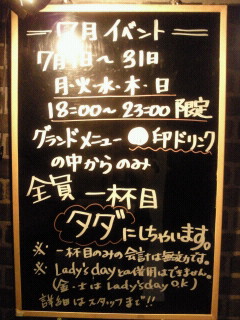 7月イベント
7月1日〜31日
月・火・水・木・日
18:00〜23:00限定
グランドメニュー●印ドリンク
の中からのみ
全員 一杯目
タダにしちゃいます。
※ 一杯目のみの会計は無効です。
※ Lady's dayとの併用はできません。
(金・土はLady's day O.K)
詳細はスタッフまで!!